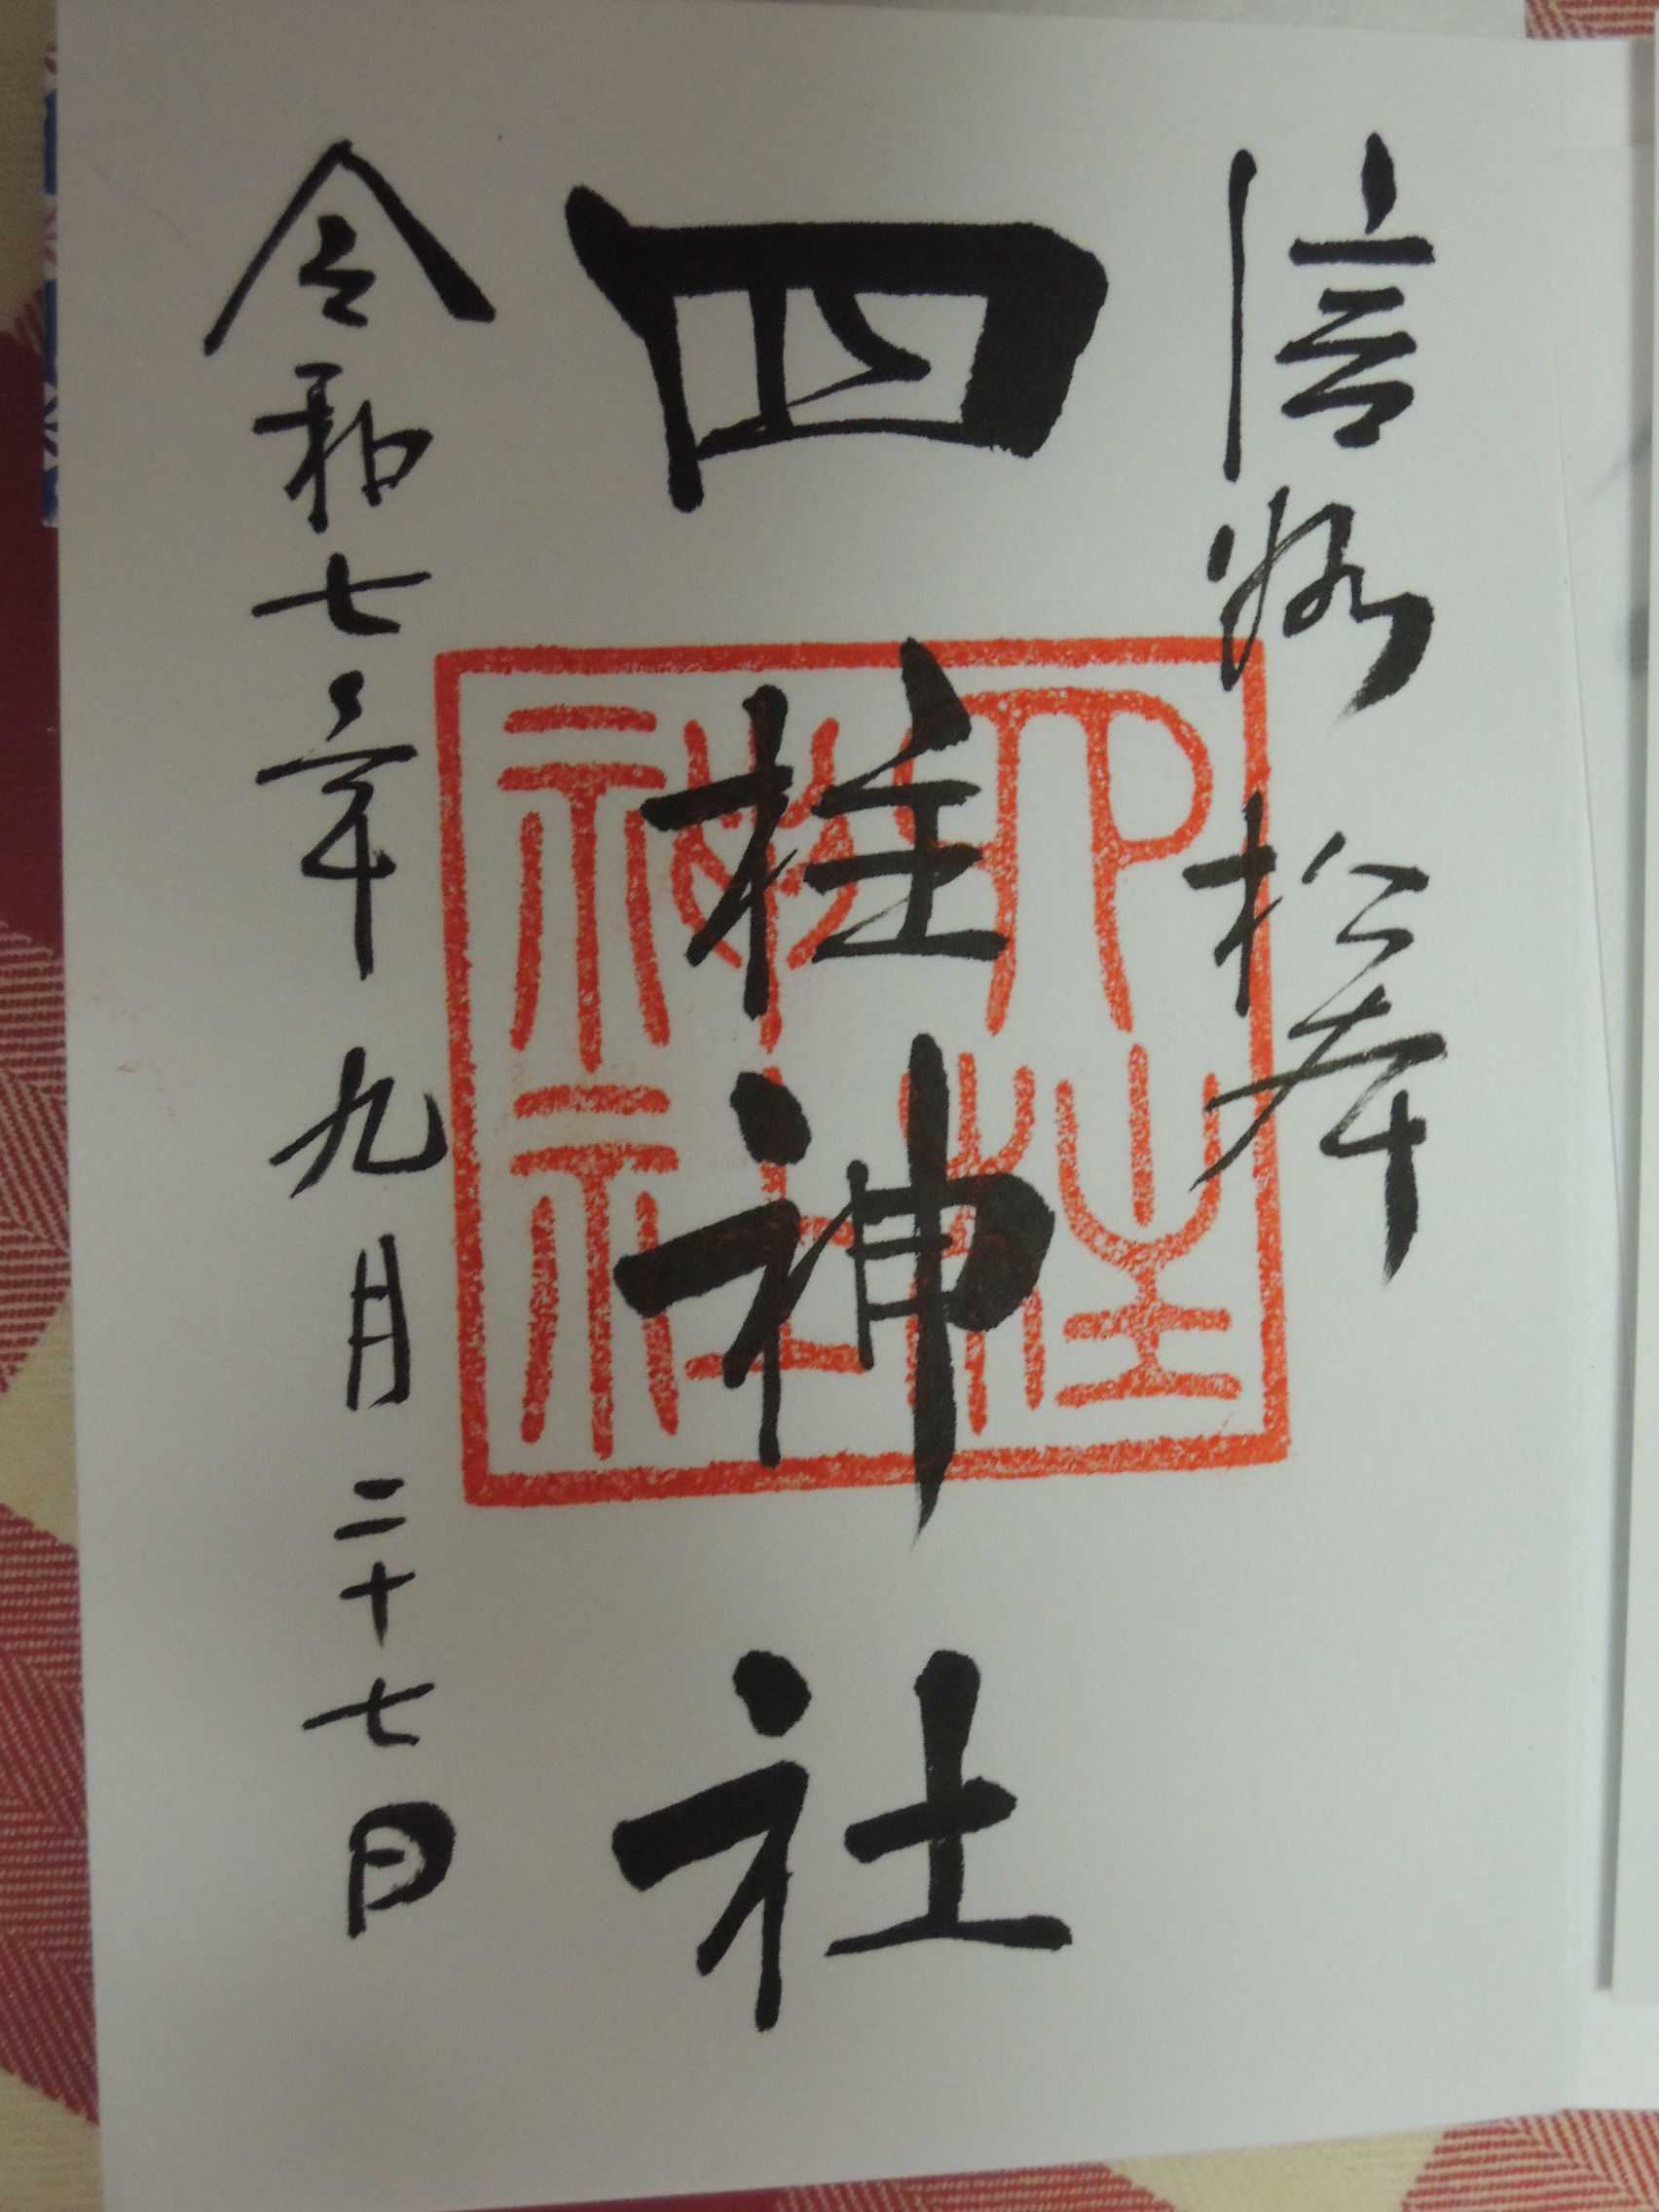 信州 松本
四柱神社
四柱神社
令和七年九月二十七日